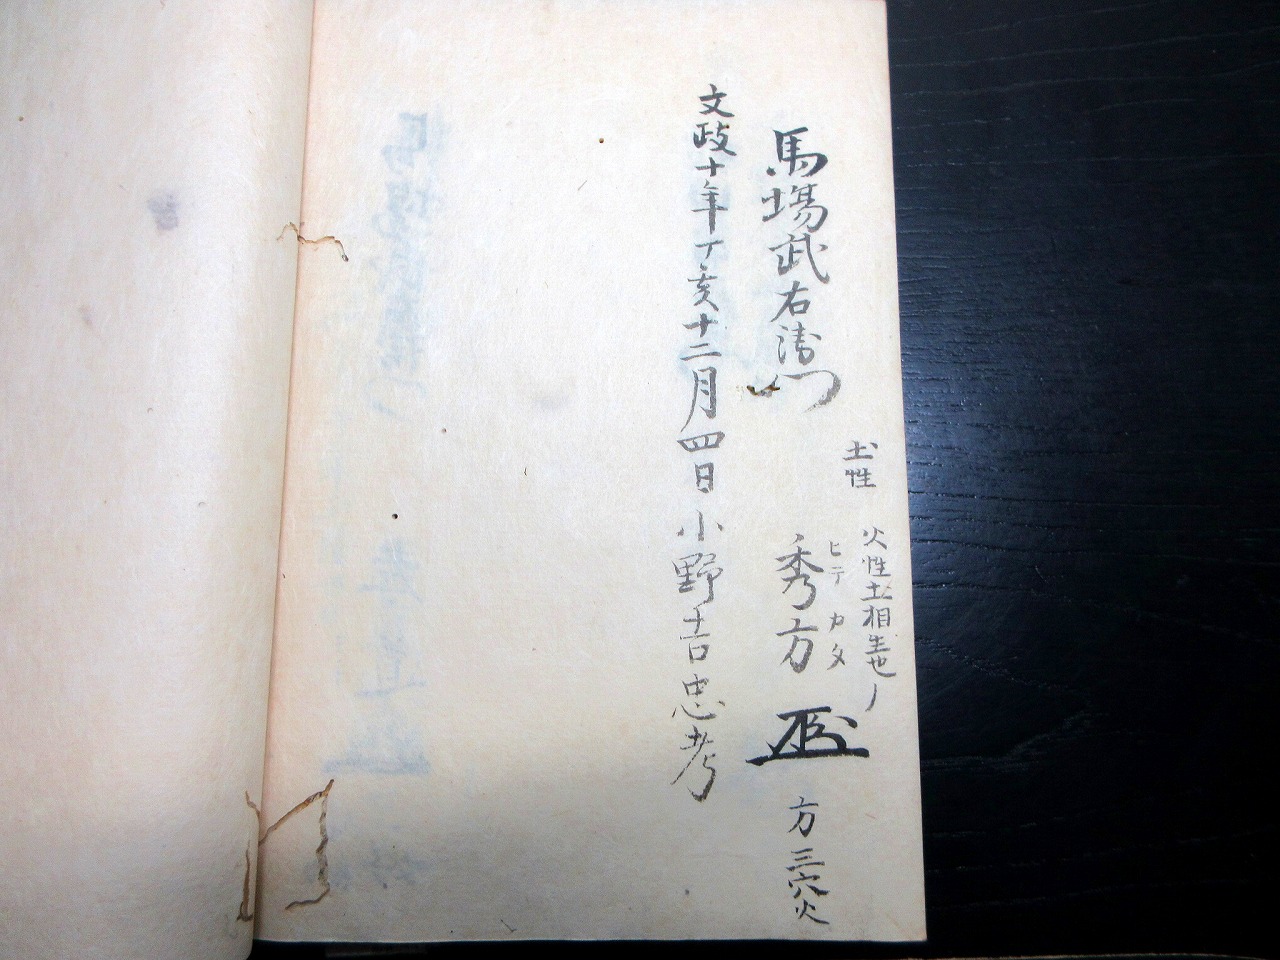 土性
火性土相生也
馬場武右衛門
秀方
ヒデカタ
方三穴火
文政十年丁亥十二月四日小野吉忠考